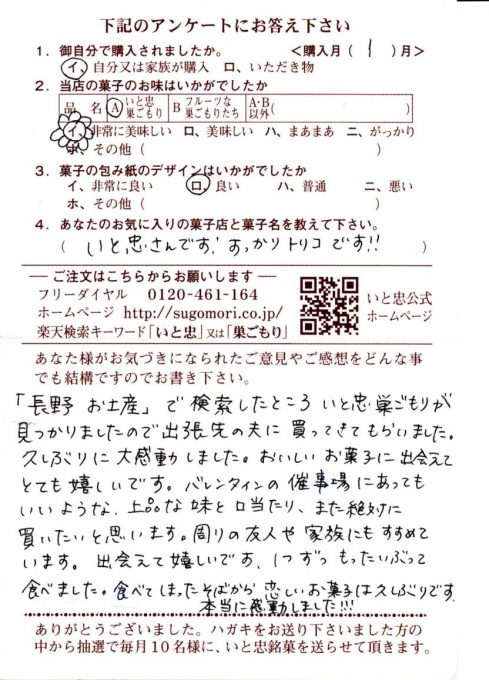 下記のアンケートにお答え下さい
1. 御自分で購入されましたか。 <購入月( 1 )月>
イ、自分又は家族が購入 ロ、いただき物
2. 当店の菓子のお味はいかがでしたか
品 名 A いと忠巣ごもり B フルーツな巣ごもりたち A・B以外( )
イ、非常に美味しい ロ、美味しい ハ、まあまあ ニ、がっかり
ホ、その他( )
3. 菓子の包み紙のデザインはいかがでしたか
イ、非常に良い ロ、良い ハ、普通 ニ、悪い
ホ、その他( )
4. あなたのお気に入りの菓子店と菓子名を教えて下さい。
( いと忠さんです! すっかりトリコです!! )
― ご注文はこちらからお願いします ―
フリーダイヤル 0120-461-164
ホームページ http://sugomori.co.jp/
楽天検索キーワード「いと忠」又は「巣ごもり」
いと忠公式
ホームページ
あなた様がお気づきになられたご意見やご感想をどんな事
でも結構ですのでお書き下さい。
「長野 お土産」で検索したところ いと忠巣ごもりが
見つかりましたので出張先の夫に買ってきてもらいました。
久しぶりに大感動しました。おいしいお菓子に出会えて
とても嬉しいです。バレンタインの催事場にあっても
いいような、上品な味と口当たり、また絶対に
買いたいと思います。周りの友人や家族にもすすめて
います。出会えて嬉しいです、1つずつもったいぶって
食べました。食べてしまったそばから恋しいお菓子は久しぶりです
本当に感動しました!!!
ありがとうございました。ハガキをお送り下さいました方の
中から抽選で毎月10名様に、いと忠銘菓を送らせて頂きます。